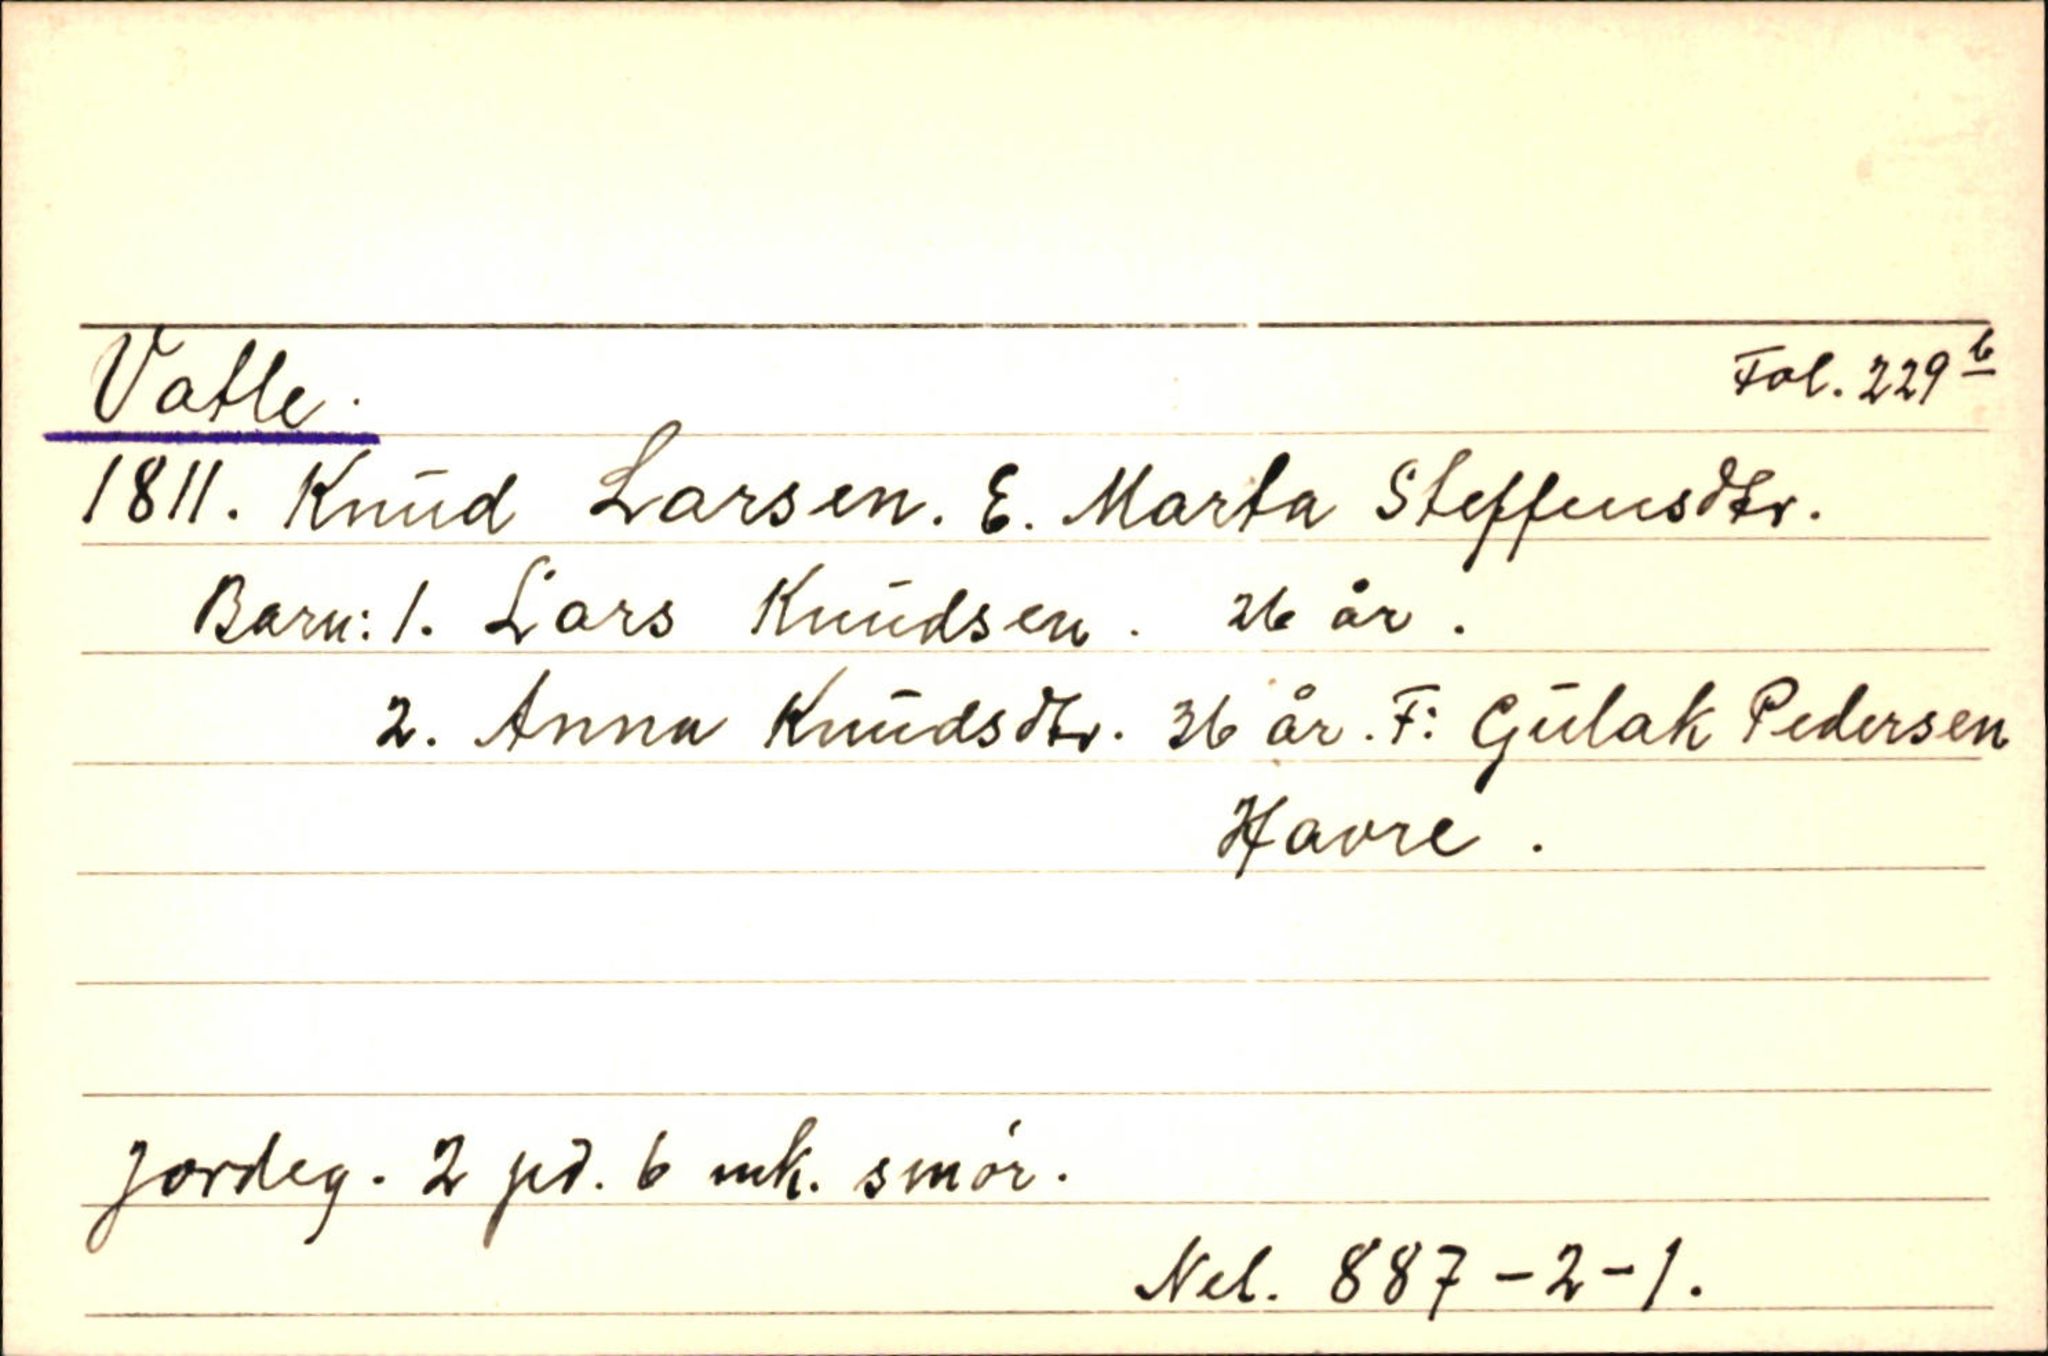 Vatle.
Fol. 229 b
1811. Knud Larsen. E. Marta Steffensdtr.
Barn: 1. Lars Knudsen. 26 år.
2. Anna Knudsdtr. 36 år. F: Gulak Pedersen
Havre.
Jordeg. 2 pd. 6 mk. smör.
Nel. 887-2-1.